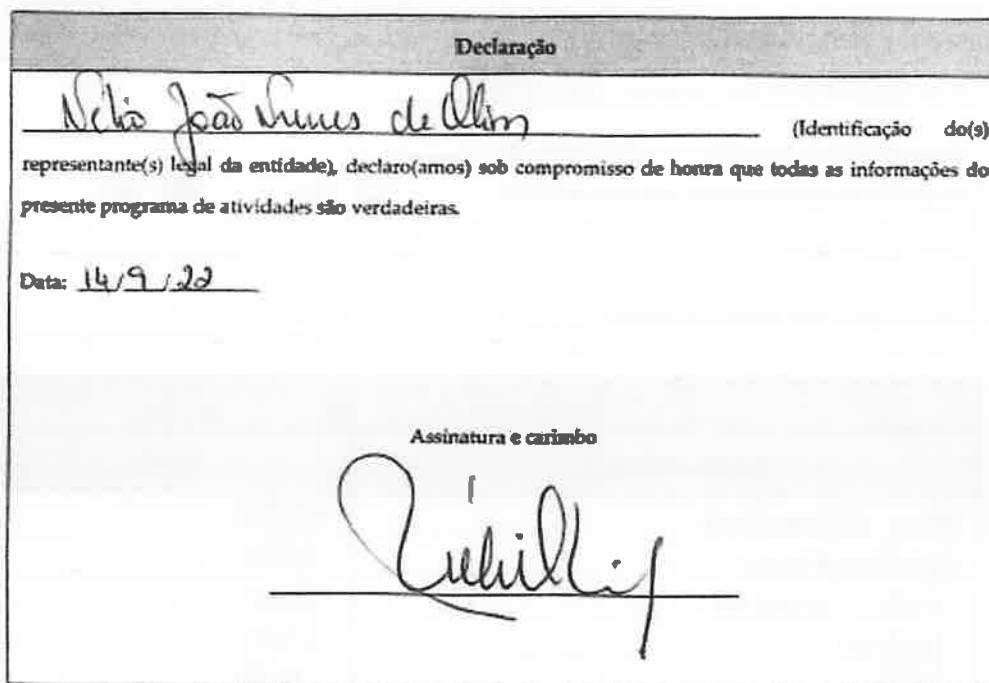 Declaração
Nélio João Nunes de Olim (Identificação do(s)
representante(s) legal da entidade), declaro(amos) sob compromisso de honra que todas as informações do
presente programa de atividades são verdadeiras.
Data: 14/9/22
Assinatura e carimbo